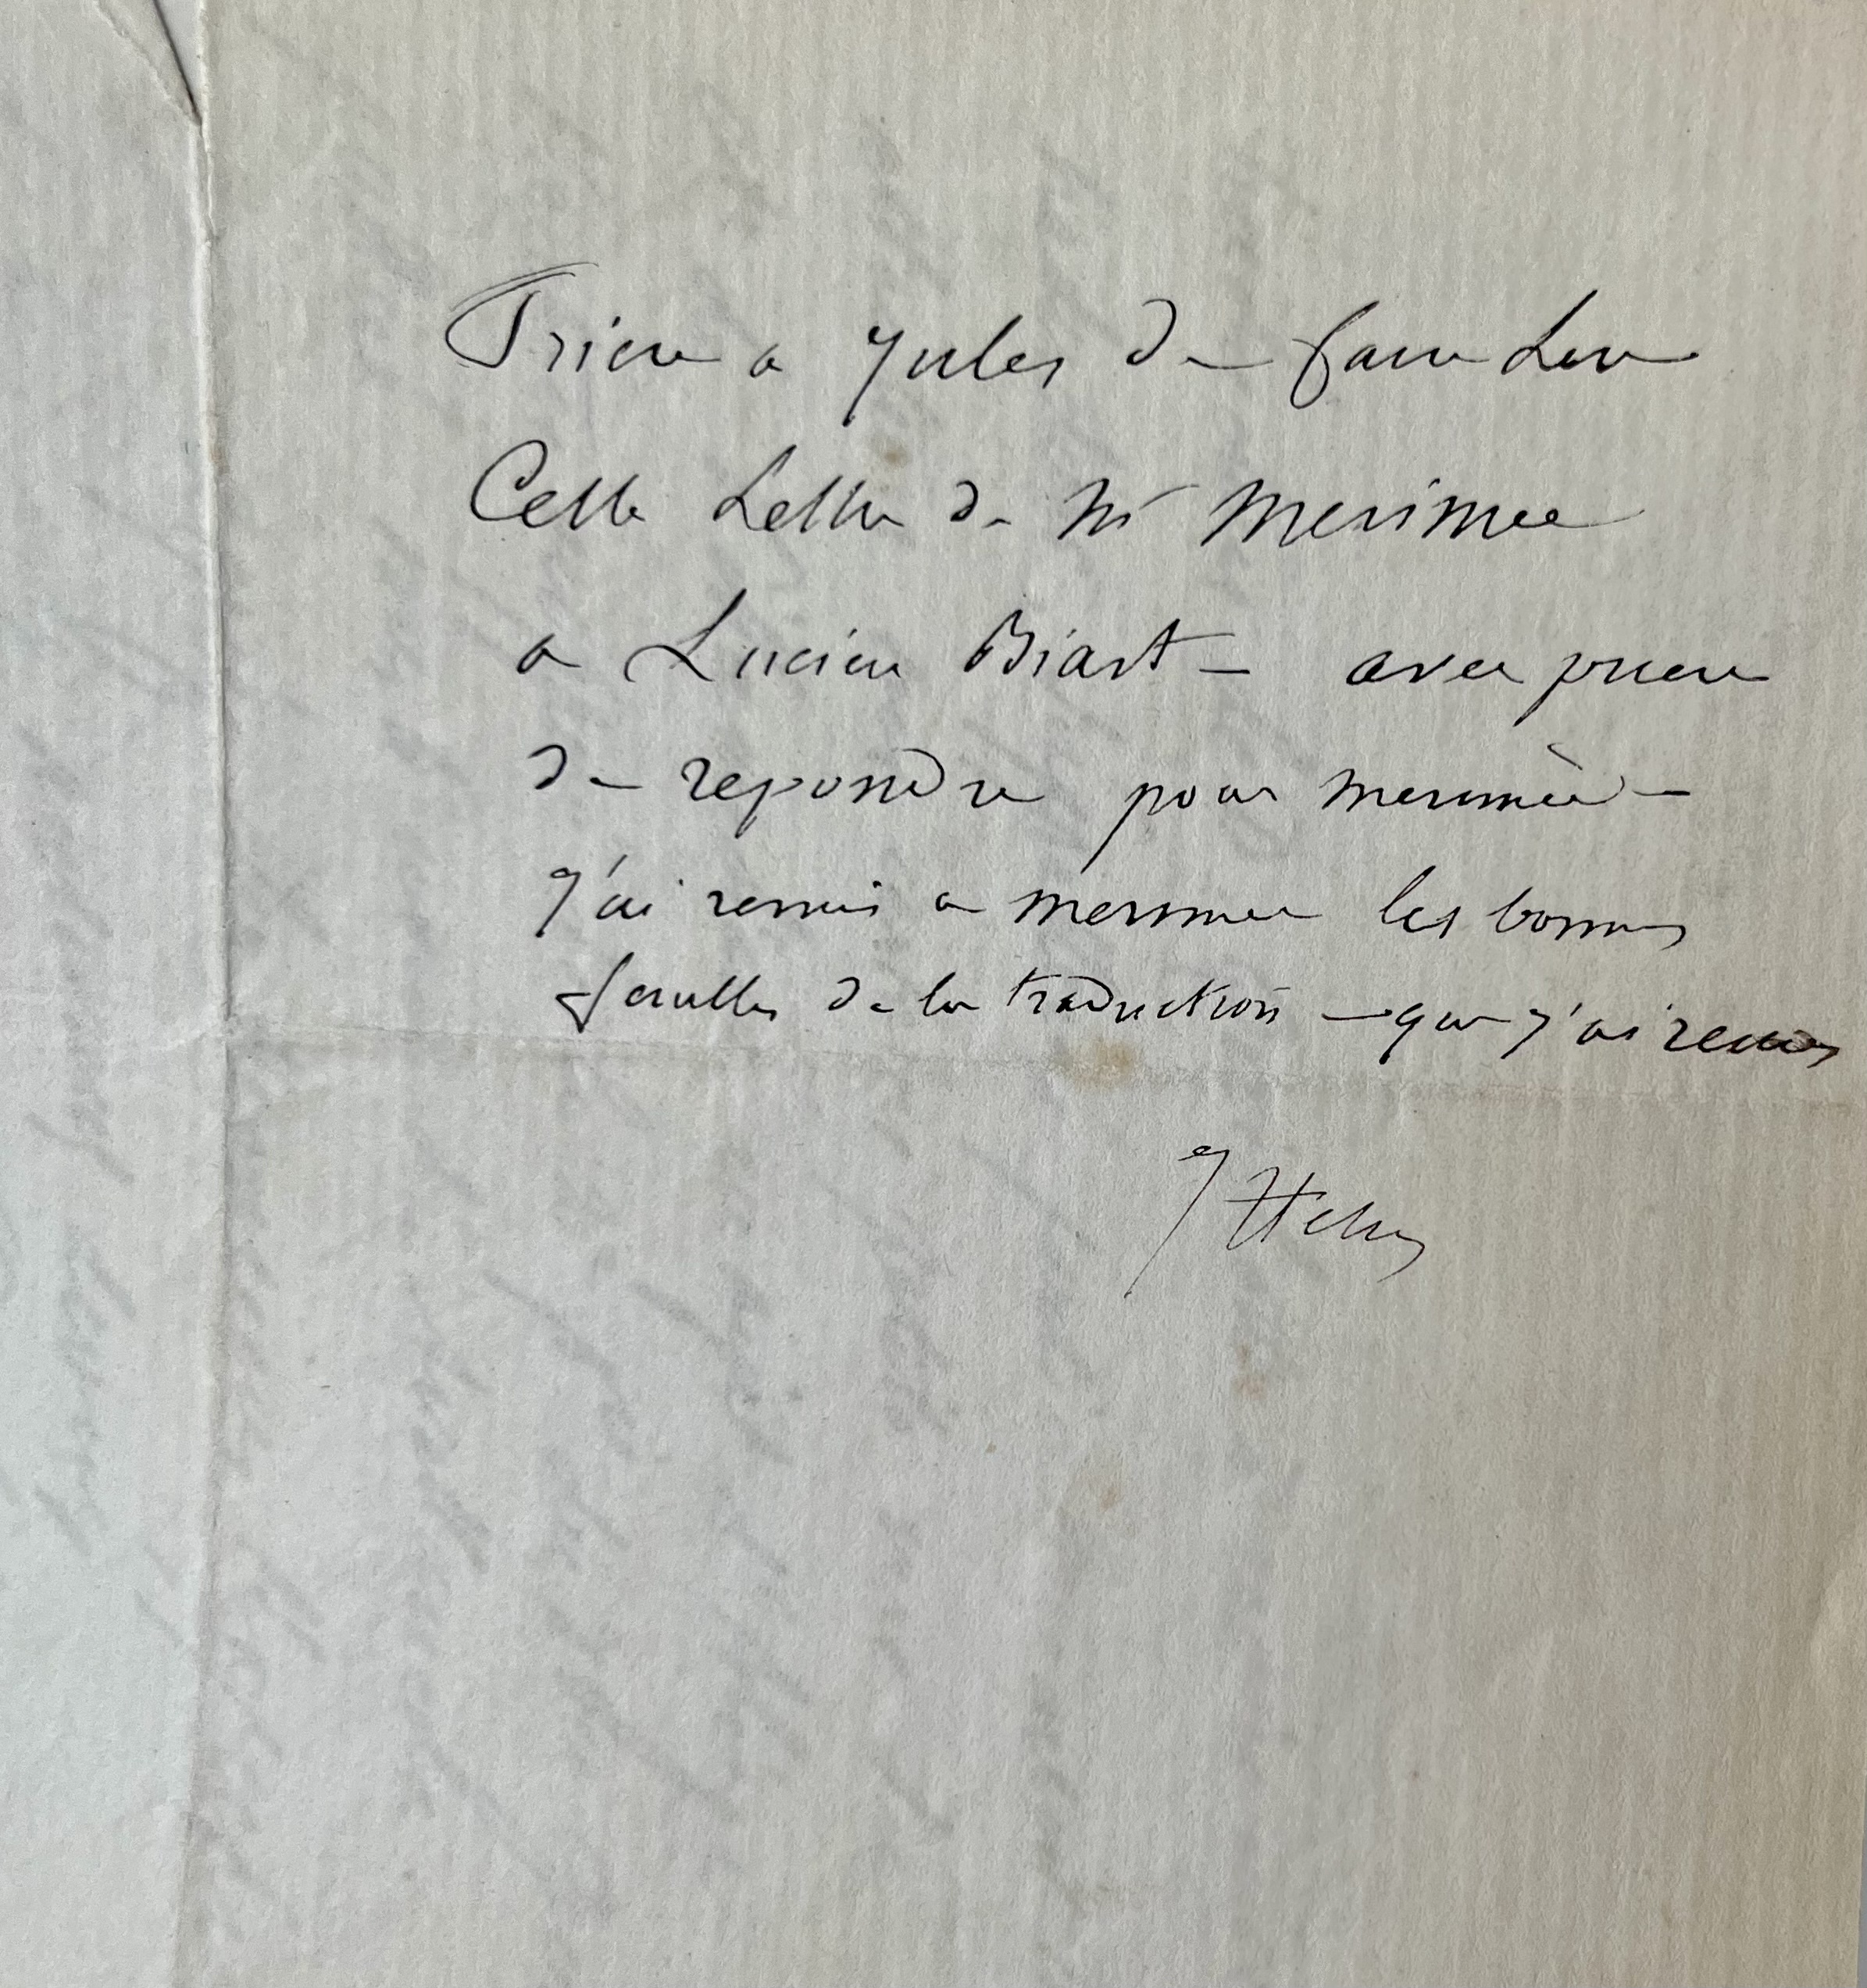 Priere a Jules de faire Lire
Cette Lettre de Mr Merimee
a Lucien Biart - avec priere
de repondre pour merimée -
J'ai remis a merimee les bonnes
feuilles de la traduction - que j'ai
JHetzel